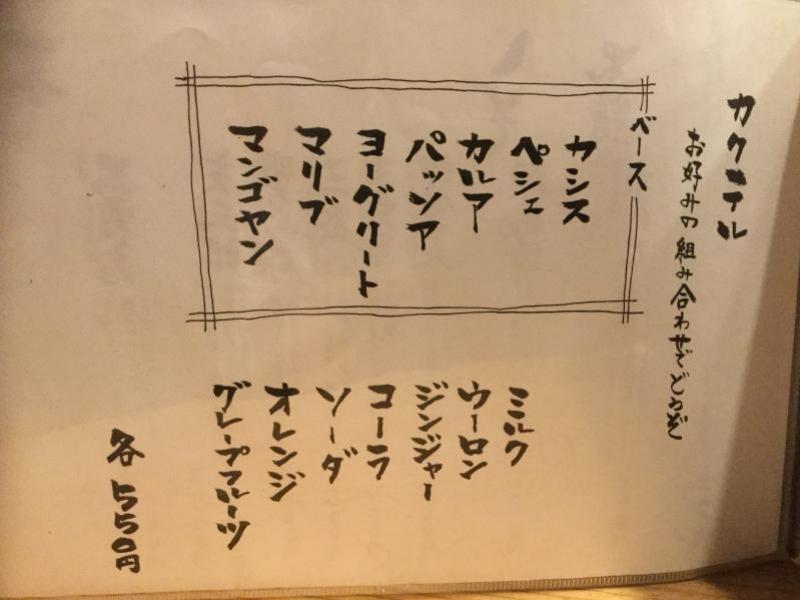 カクテル
お好みの組み合わせでどうぞ
ベース
カシス
ペシェ
カルアー
パッソア
ヨーグリート
マリブ
マンゴヤン
ミルク
ウーロン
ジンジャー
コーラ
ソーダ
オレンジ
グレープフルーツ
各550円